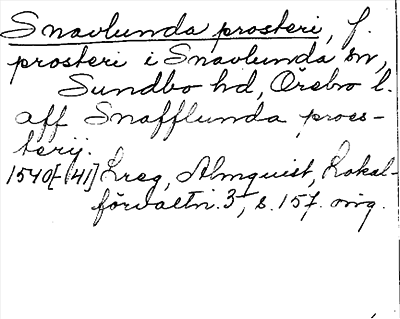 Snavlunda prosteri, f.
prosteri i Snavlunda sn,
Sundbo hd, Örebro l.
aff Snafflunda proes-
terij.
1540[-41] Lreg, Almquist, Lokal-
förvaltn. 3, s. 157. mig.